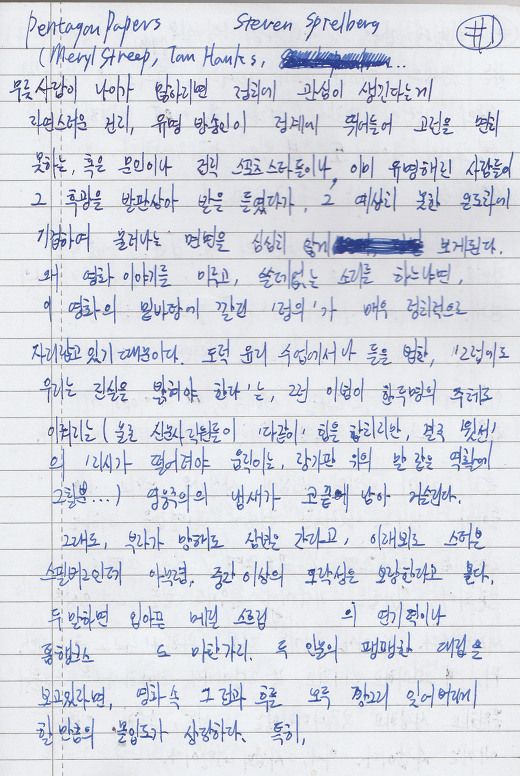 pentagon papers Steven Spielberg #1
(Meryl Streep, Tom Hanks, ...
무릇 사람이 나이가 많아지면 정치에 관심이 생긴다는게
자연스러운 건지, 유명 방송인이 정계에 뛰어들어 고전을 면치
못하는, 혹은 문인이나 전직 스포츠스타들이나, 이미 유명해진 사람들이
그 후광을 발판삼아 발을 들였다가, 그 예상치 못한 온도차에
기겁하여 물러나는 면면을 심심치 않게 보게된다.
왜 영화 이야기를 미루고, 쓸데없는 소리를 하느냐면,
이 영화의 밑바탕에 깔린 '정의'가 매우 정치적으로
자리잡고 있기 때문이다. 도덕 윤리 수업에서나 들을 법한, '그럼에도
우리는 진실을 밝혀야 한다'는, 그런 이념이 한두명의 주체로
이뤄지는 (물론 신문사 직원들이 '다같이' 힘을 합치지만, 결국 '윗선'
의 '지시가 떨어져야 움직이는, 장기판 위의 말 같은 역할에
그칠뿐...) 영웅주의의 냄새가 코끝에 남아 거슬린다.
그래도, 부자가 망해도 삼년은 간다고, 이래뵈도 스티븐
스필버그인데 아무렴, 중간 이상의 오락성은 보장한다고 본다.
두말하면 입아픈 메릴 스트립 의 연기력이나
톰행크스 도 마찬가지. 두 인물의 팽팽한 대립을
보고있자면, 영화 속 그 전과 후를 모두 깡그리 잊어버리게
할 만큼의 몰입도가 상당하다. 특히,